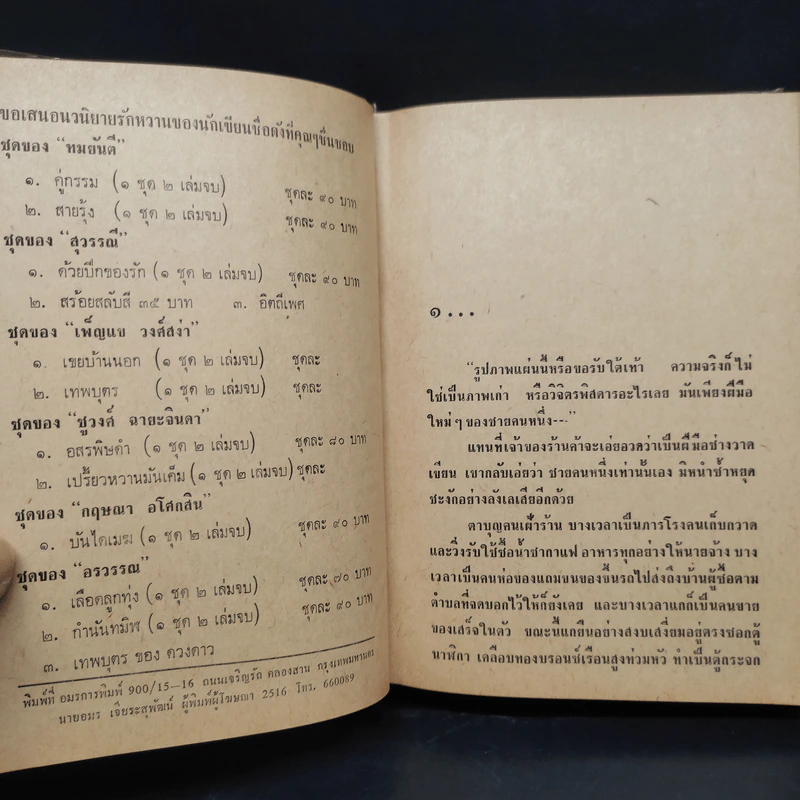 ขอเสนอนวนิยายรักหวานของนักเขียนชื่อดังที่คุณๆชื่นชอบ
ชุดของ “ทมยันตี”
๑. คู่กรรม (๑ ชุด ๒ เล่มจบ) ชุดละ ๙๐ บาท
๒. สายรุ้ง (๑ ชุด ๒ เล่มจบ) ชุดละ ๙๐ บาท
ชุดของ “สุวรรณี”
๑. ด้วยปีกของรัก (๑ ชุด ๒ เล่มจบ) ชุดละ ๙๐ บาท
๒. สร้อยสลับสี ๓๕ บาท ๓. อิตถีเพศ
ชุดของ “เพ็ญแข วงศ์สง่า”
๑. เขยบ้านนอก (๑ ชุด ๒ เล่มจบ) ชุดละ
๒. เทพบุตร (๑ ชุด ๒ เล่มจบ) ชุดละ
ชุดของ “ชูวงศ์ ฉายะจินดา”
๑. อสรพิษดำ (๑ ชุด ๒ เล่มจบ) ชุดละ ๘๐ บาท
๒. เปรี้ยวหวานมันเค็ม (๑ ชุด ๒ เล่มจบ) ชุดละ
ชุดของ “กฤษณา อโศกสิน”
๑. บันไดเมฆ (๑ ชุด ๒ เล่มจบ) ชุดละ ๙๐ บาท
ชุดของ “อรวรรณ”
๑. เลือดลูกทุ่ง (๑ ชุด ๒ เล่มจบ) ชุดละ ๗๐ บาท
๒. กำนันทมิฬ (๑ ชุด ๒ เล่มจบ) ชุดละ ๙๐ บาท
๓. เทพบุตร ของ ดวงดาว
พิมพ์ที่ อมรการพิมพ์ 900/15—16 ถนนเจริญรัถ คลองสาน กรุงเทพมหานคร
นายอมร เจียระสุพัฒน์ ผู้พิมพ์ผู้โฆษณา 2516 โทร. 660089
๑...
“รูปภาพแผ่นนี้หรือขอรับใต้เท้า ความจริงก็ไม่
ใช่เป็นภาพเก่า หรือวิจิตรพิสดารอะไรเลย มันเพียงฝีมือ
ใหม่ ๆ ของชายคนหนึ่ง---”
แทนที่เจ้าของร้านค้าจะเอ่ยอวดว่าเป็นฝีมือช่างวาด
เขียน เขากลับเอ่ยว่า ชายคนหนึ่งเท่านั้นเอง มิหนำซ้ำหยุด
ชะงักอย่างลังเลเสียอีกด้วย
ตาบุญคนเฝ้าร้าน บางเวลาเป็นภารโรงคนเก็บกวาด
และวิ่งรับใช้ซื้อน้ำชากาแฟ อาหารทุกอย่างให้นายจ้าง บาง
เวลาเป็นคนห่อของแถมขนของขึ้นรถไปส่งถึงบ้านผู้ซื้อตาม
ตำบลที่จดบอกไว้ให้ก็ยังเคย และบางเวลาแกก็เป็นคนขาย
ของเสร็จในตัว ขณะนี้แกยืนอย่างสงบเสงี่ยมอยู่ตรงซอกตู้
นาฬิกา เคลือบทองบรอนซ์เรือนสูงท่วมหัว ทำเป็นตู้กระจก